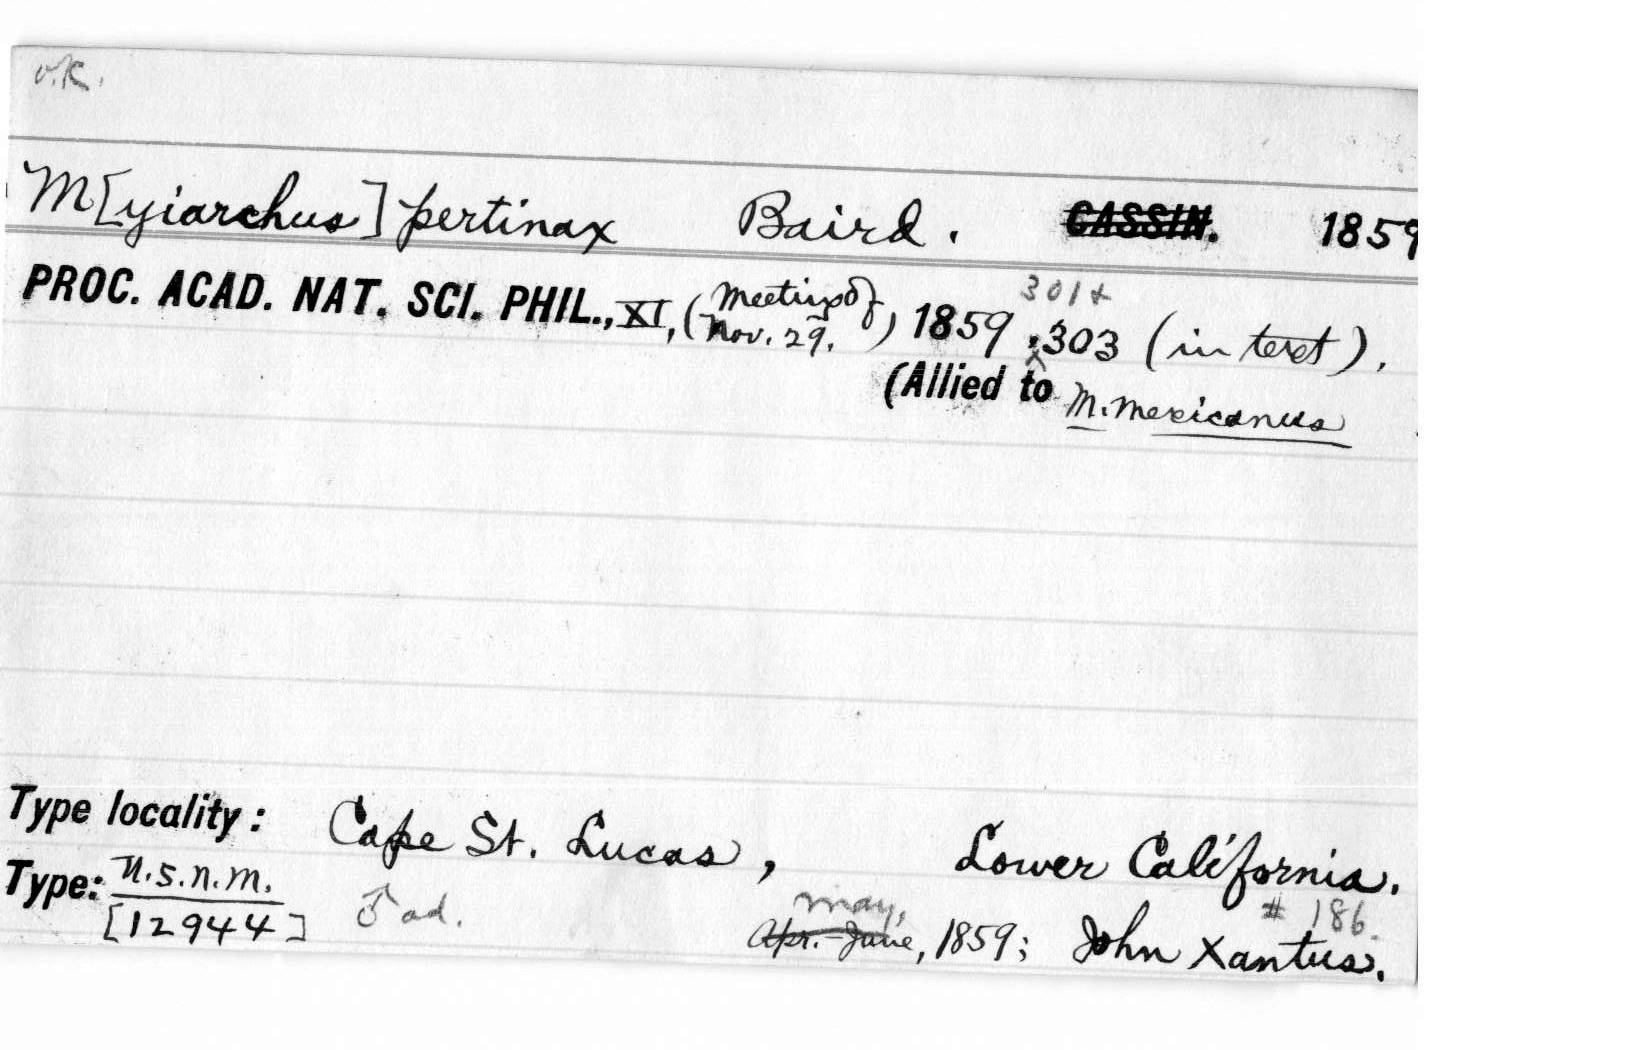 O.K.
M[yiarchus] pertinax Baird. CASSIN. 1859
301+
PROC. ACAD. NAT. SCI. PHIL., XI, (Meeting of Nov. 29,) 1859, 303 (in text).
(Allied to M. mexicanus
Type locality: Cape St. Lucas, Lower California.
Type: U.S.N.M. [12944] ♂ ad. May, Apr.-June, 1859; # 186. John Xantus.